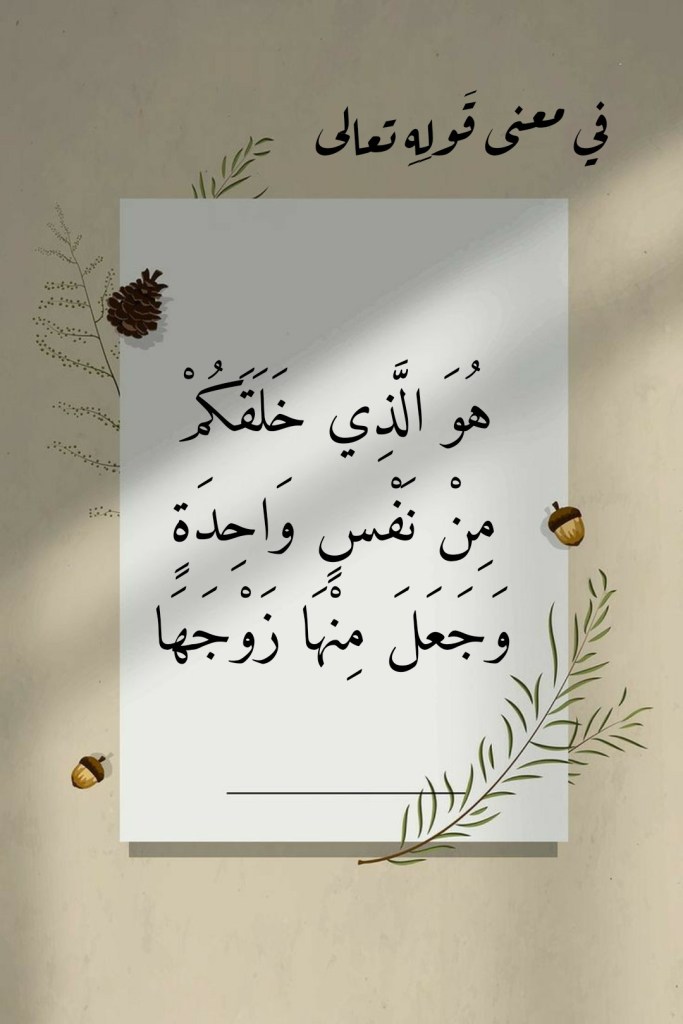 في معنى قَولِهِ تعالى
هُوَ الَّذِي خَلَقَكُمْ
مِنْ نَفْسٍ وَاحِدَةٍ
وَجَعَلَ مِنْهَا زَوْجَهَا